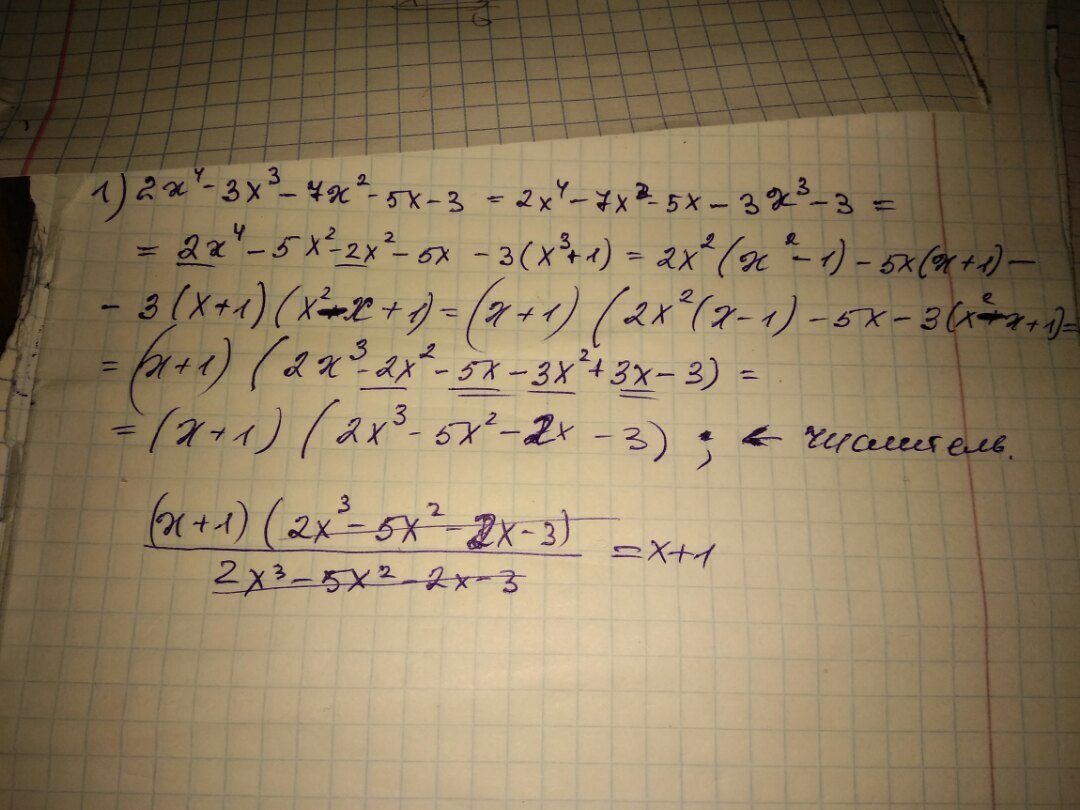 1) 2x⁴ - 3x³ - 7x² - 5x - 3 = 2x⁴ - 7x² - 5x - 3x³ - 3 =
= 2x⁴ - 5x² - 2x² - 5x - 3(x³+1) = 2x²(x² - 1) - 5x(x+1) -
- 3(x+1)(x² - x + 1) = (x+1) (2x²(x-1) - 5x - 3(x² - x + 1) =
= (x+1) (2x³ - 2x² - 5x - 3x² + 3x - 3) =
= (x+1) (2x³ - 5x² - 2x - 3) ; ← числитель.
(x+1) (2x³ - 5x² - 2x - 3)
= x+1
2x³ - 5x² - 2x - 3